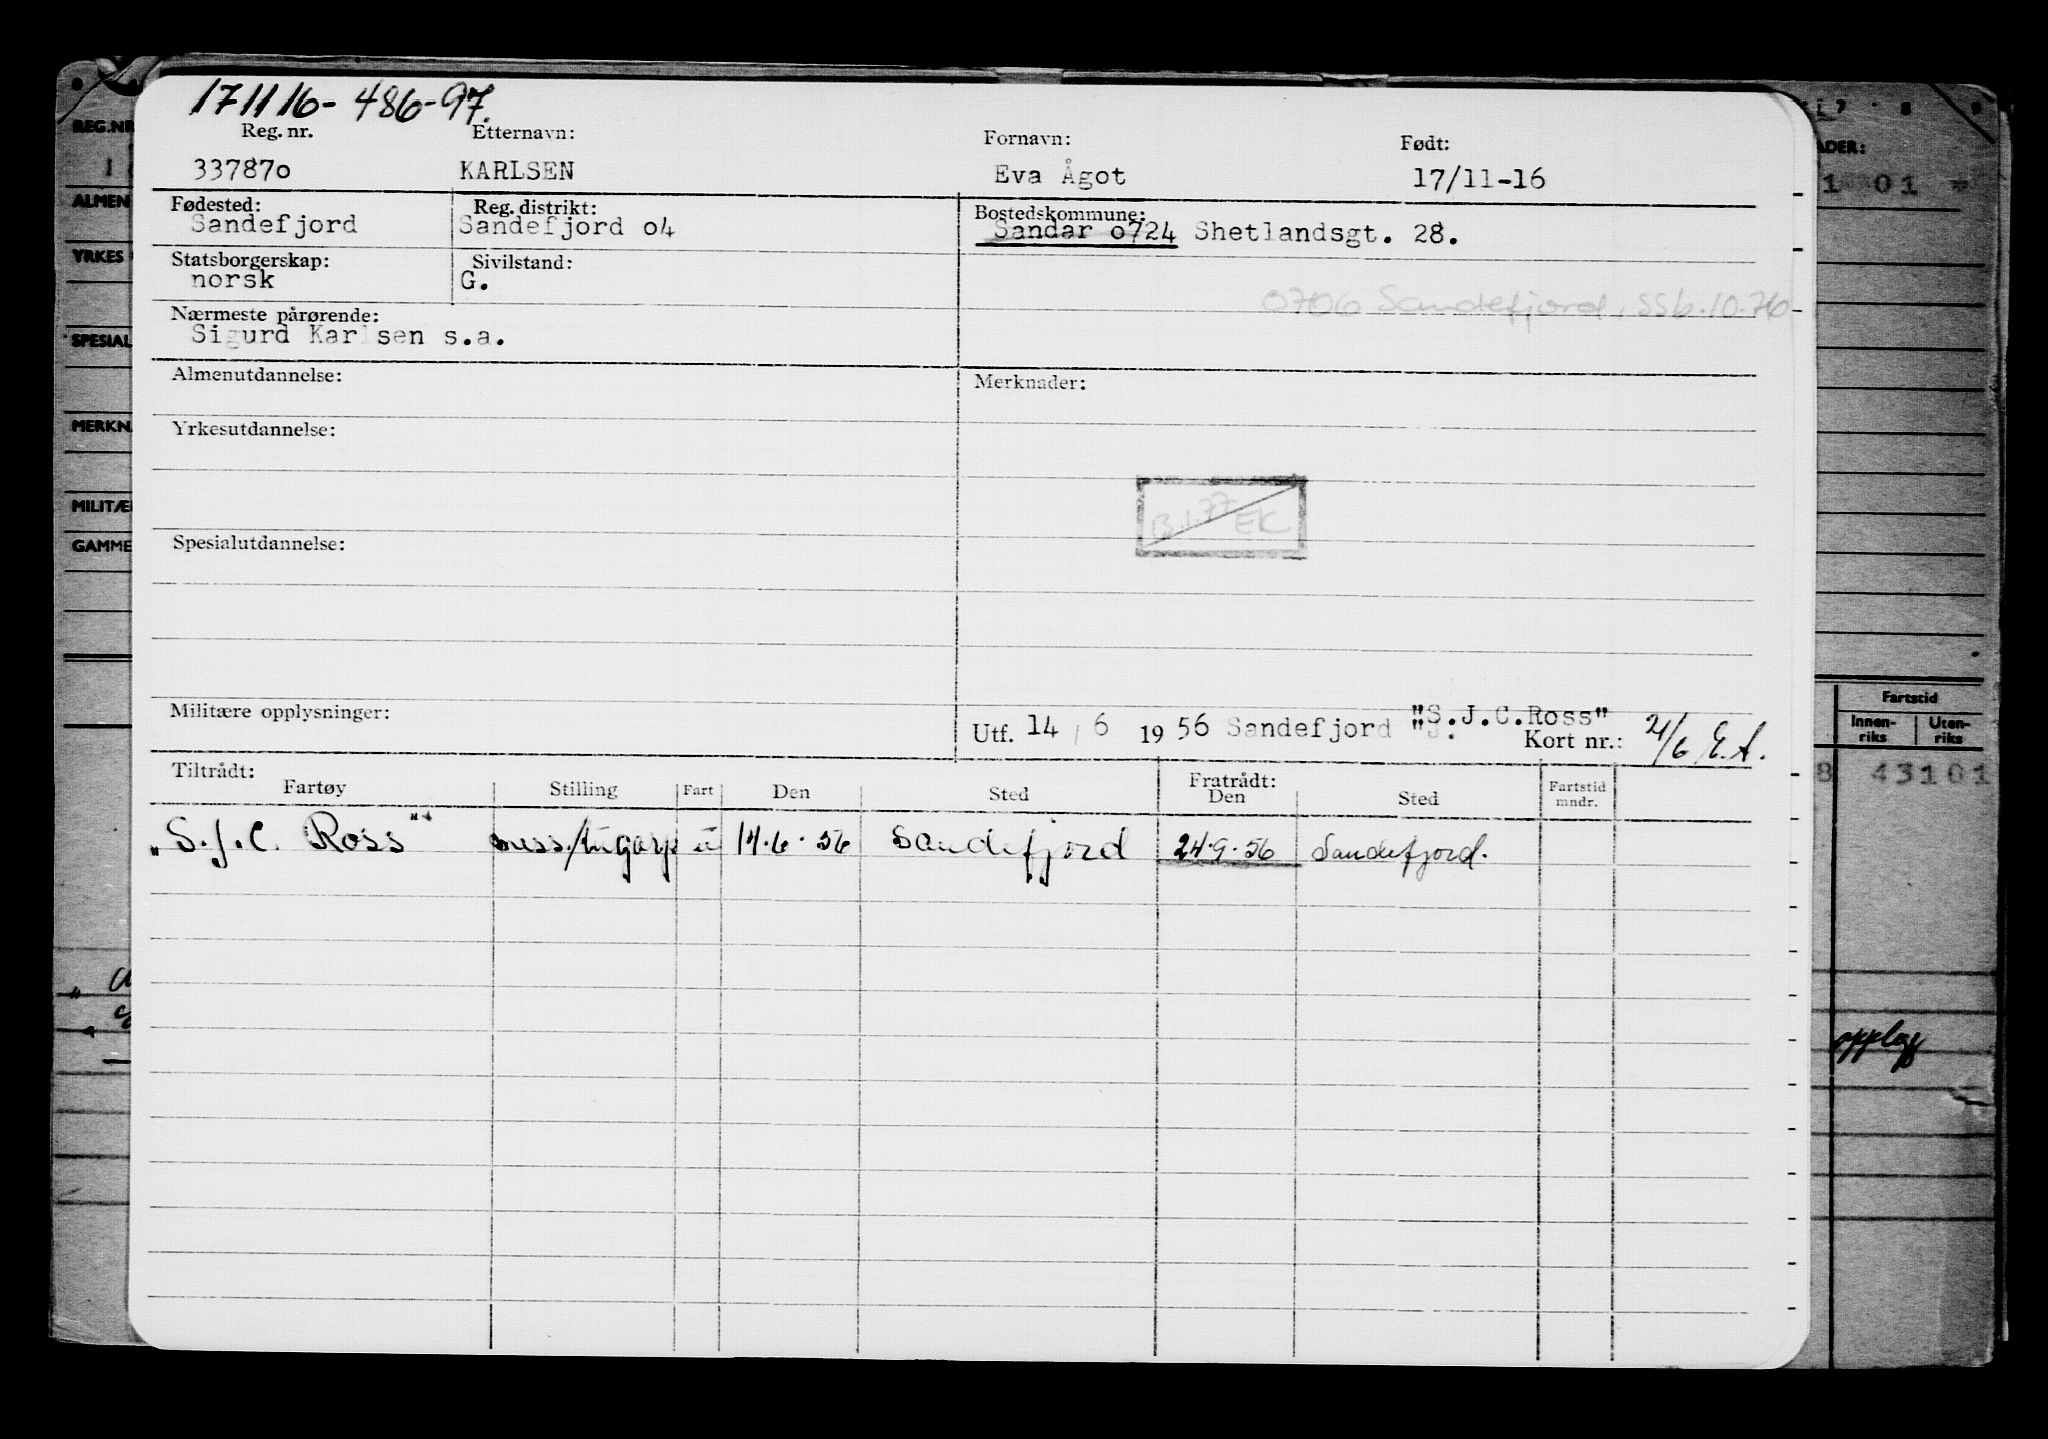 171116-486-97.
Reg. nr. Etternavn: Fornavn: Født:
337870 KARLSEN Eva Ågot 17/11-16
Fødested: Reg. distrikt: Bostedskommune:
Sandefjord Sandefjord o4 Sandar o724 Shetlandsgt. 28.
Statsborgerskap: Sivilstand:
norsk G.
0706 Sandefjord, SSb.10.76
Nærmeste pårørende:
Sigurd Karlsen s.a.
Almenutdannelse: Merknader:
Yrkesutdannelse:
B.1.77 EK
Spesialutdannelse:
Militære opplysninger:
Utf. 14 / 6 1956 Sandefjord "S.J.C.Ross"
Kort nr.: 21/6 E.A.
Tiltrådt: Fratrådt:
Fartøy Stilling Fart Den Sted Den Sted Fartstid mndr.
"S.J.C. Ross" u 14.6.56 Sandefjord 24.9.56 Sandefjord.
REG.NR
ALMEN
YRKES
SPESIAL
MERKN
MILITÆ
GAMME
7 8 9
ADER:
1 01
Fartstid
Innen-riks Uten-riks
8 43101
opplag